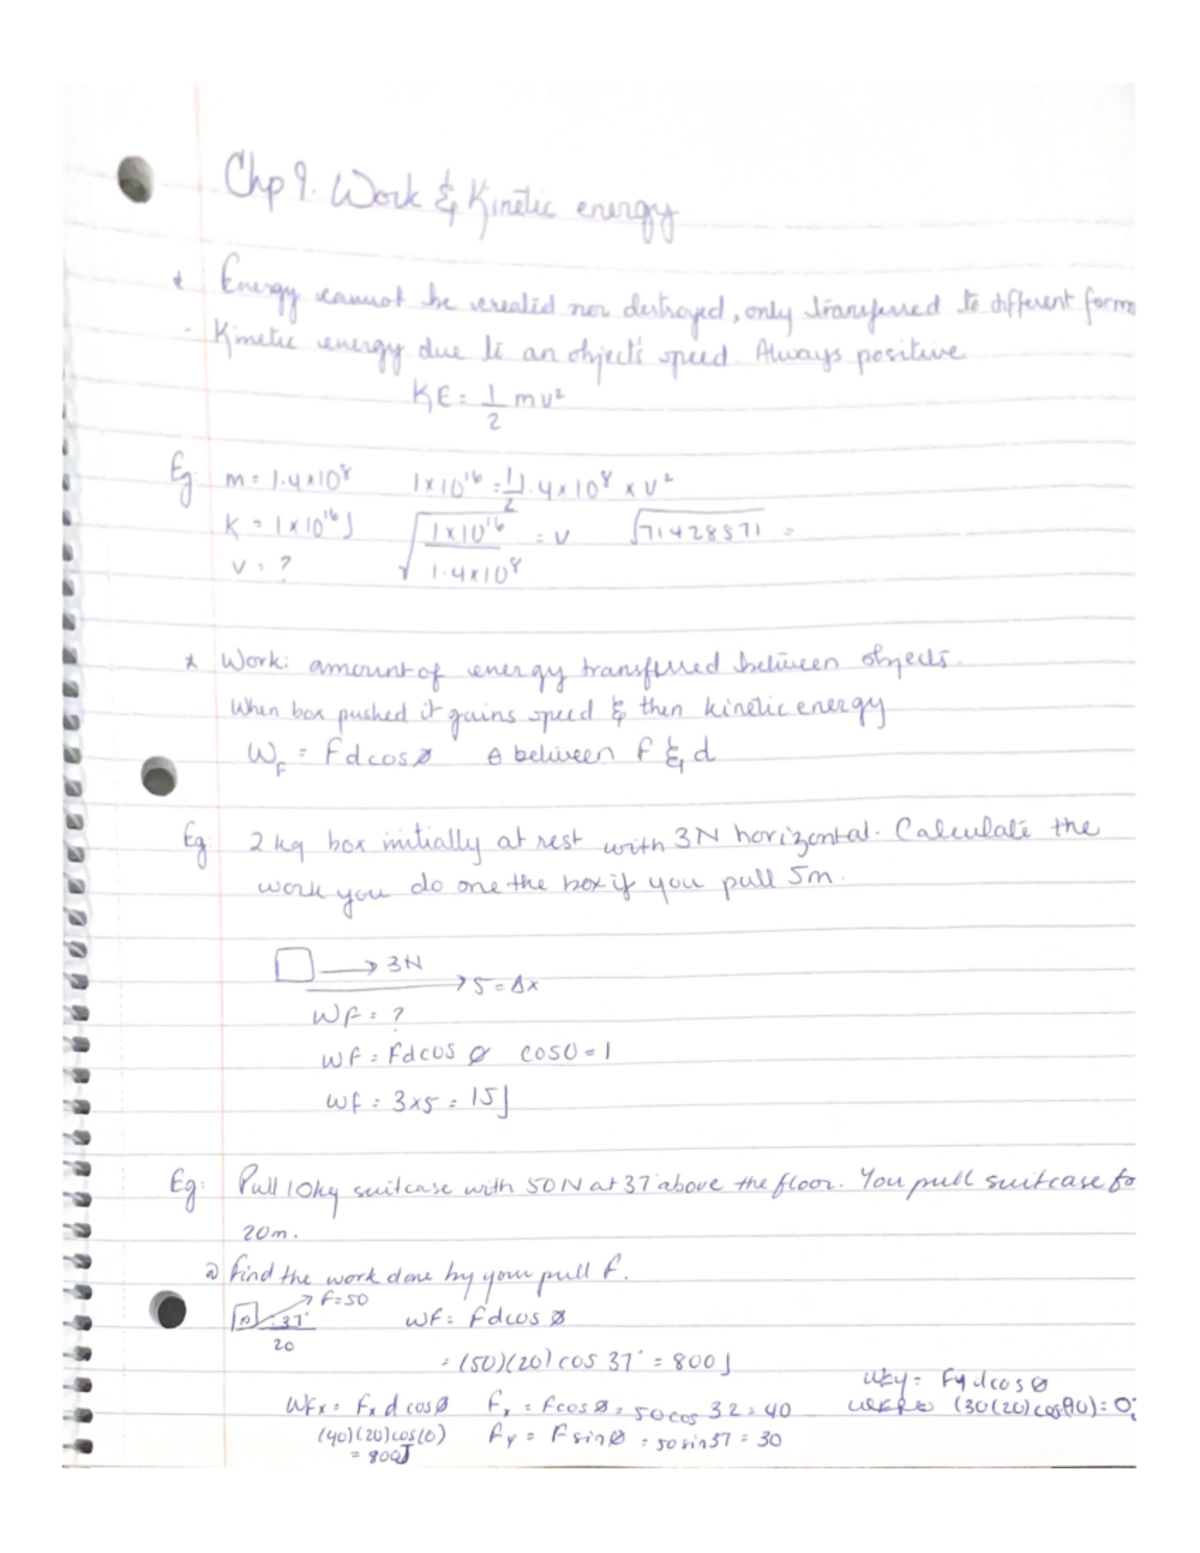 Chp 9. Work & Kinetic energy
* Energy cannot be created nor destroyed, only transferred to different forms
- Kinetic energy due to an object's speed. Always positive
KE = 1/2 mv²
Eg: m = 1.4x10⁸ 1x10¹⁶ = 1/2 1.4x10⁸ x v²
K = 1x10¹⁶J √(1x10¹⁶/1.4x10⁸) = v √71428571 =
v = ?
* Work: amount of energy transferred between objects.
When box pushed it gains speed & then kinetic energy
W_F = Fdcosø θ between F & d
Eg: 2kg box initially at rest with 3N horizontal. Calculate the
work you do one the box if you pull 5m.
→ 3N
→ 5 = Δx
WF = ?
WF = Fdcos ø cos0 = 1
WF = 3x5 = 15J
Eg: Pull 10kg suitcase with 50N at 37° above the floor. You pull suitcase fo
20m.
a) Find the work done by your pull F.
F=50
37°
20
WF = Fdcos ø
= (50)(20) cos 37° = 800J
WFx = Fx d cosø Fx = Fcosø = 50cos 32 = 40
(40)(20)cos(0) Fy = Fsinø = 50sin37 = 30
= 800J
WFy = Fy d cos ø
(30(20) cos(90) = 0;